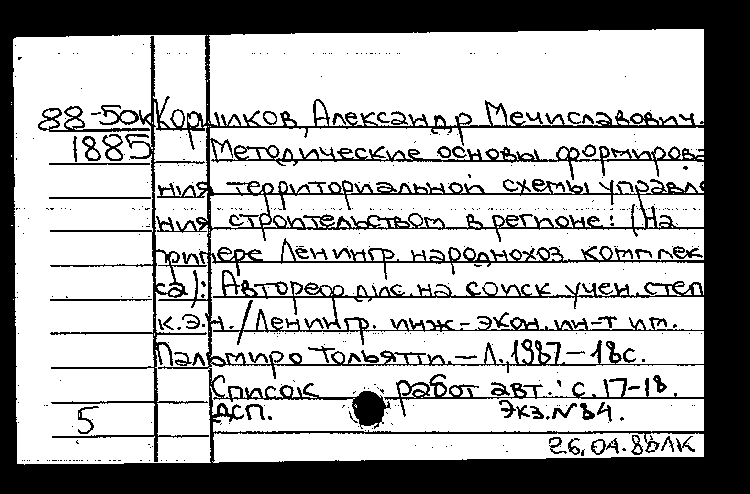 88-50к Коршиков, Александр Мечиславович.
1885 Методические основы формирова
ния территориальной схемы управле
ния строительством в регионе: (На
примере Ленингр. народнохоз. комплек
са): Автореф. дис. на соиск. учен. степ
к.э.н. / Ленингр. инж.-экон. ин-т им.
Пальмиро Тольятти. — Л., 1987. — 18с.
Список работ авт.: с. 17-18.
5 ДСП. Экз. №84.
26.04.88ЛК